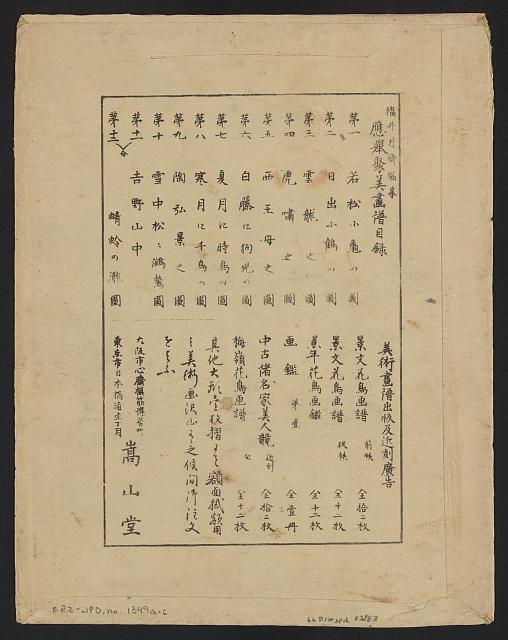 福井月齋編纂
應擧聚美畫譜目録
第一 若松小亀の圖
第二 日出小鶴の圖
第三 雲龍之圖
第四 虎嘯之圖
第五 西王母之圖
第六 白藤に狗児の圖
第七 夏月に時鳥の圖
第八 寒月に千鳥の圖
第九 陶弘景之圖
第十 雪中松に鴻鷺圖
第十一 吉野山中
第十二 蜻蛉の瀧圖
美術畫譜出版及近刻廣告
景文花鳥畫譜 前帙 全拾二枚
景文花鳥畫譜 後帙 全十二枚
景年花鳥畫鑑 全十二枚
画鑑 第壹 全壹冊
中古諸名家美人競 近刻 全拾二枚
梅嶺花鳥画譜 全 全十二枚
其他大形壹枚摺 額面拭額用
美術画沢山 候間御注文
を
大阪市心齋橋筋博労町
東京市日本橋通壹丁目
嵩山堂
F.P.2-JPD, no. 1349 a-c
LC DIG jpd 02583